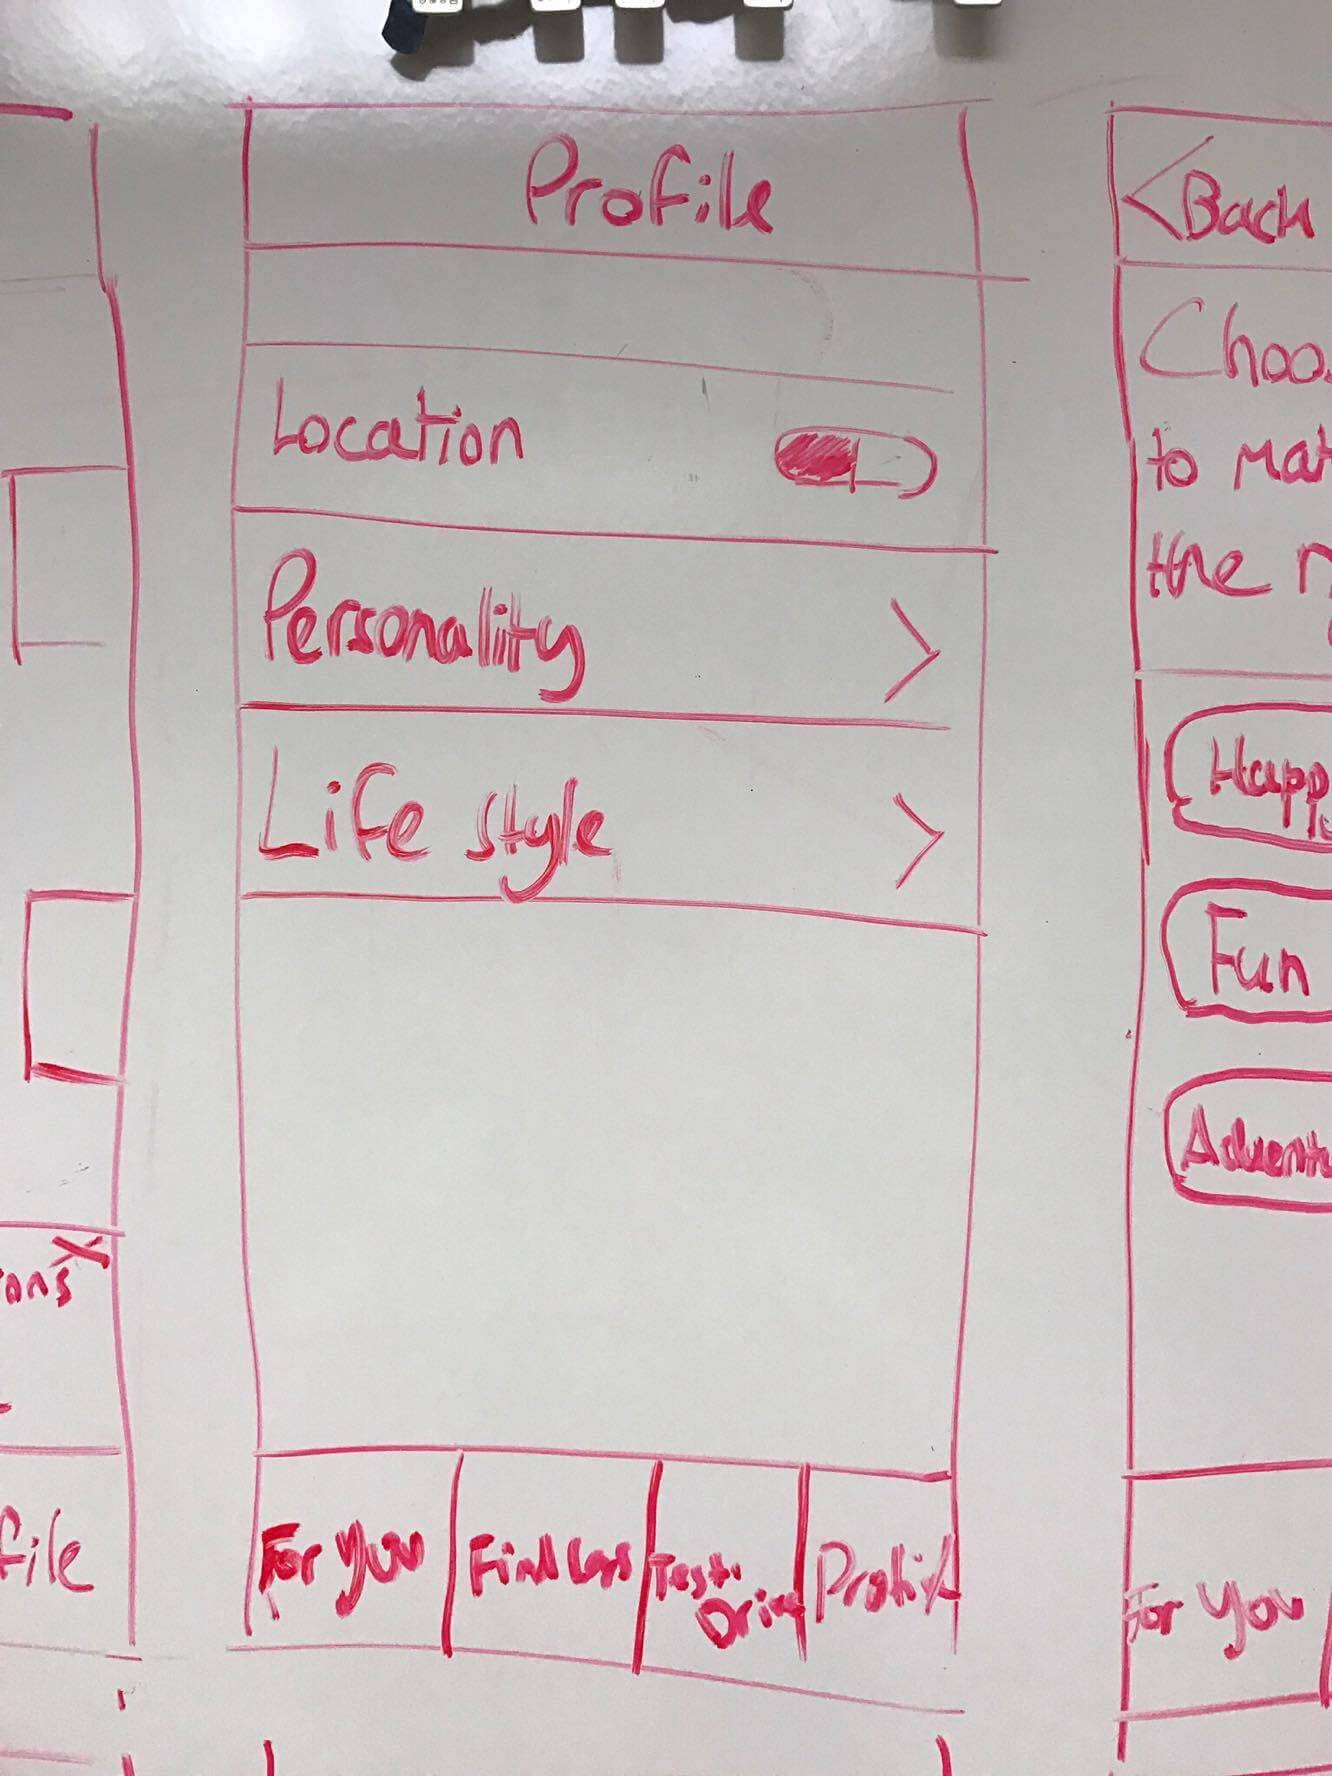 Profile
Location
Personality
Life style
For you
Find cars
Test
Drive
Profil
ons X
file
< Back
Choos
to mat
the
Happ
Fun
Advent
For you